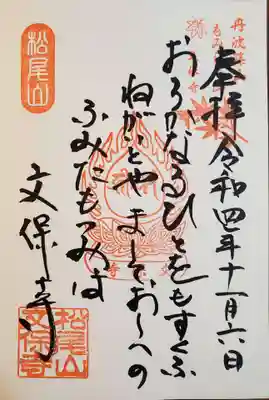 奉拝 令和四年十一月六日
おろかなるひとをもすくふ
ねがひとや ましておしへの
ふみたもつみは
文保寺
松尾山
松尾山
文保寺